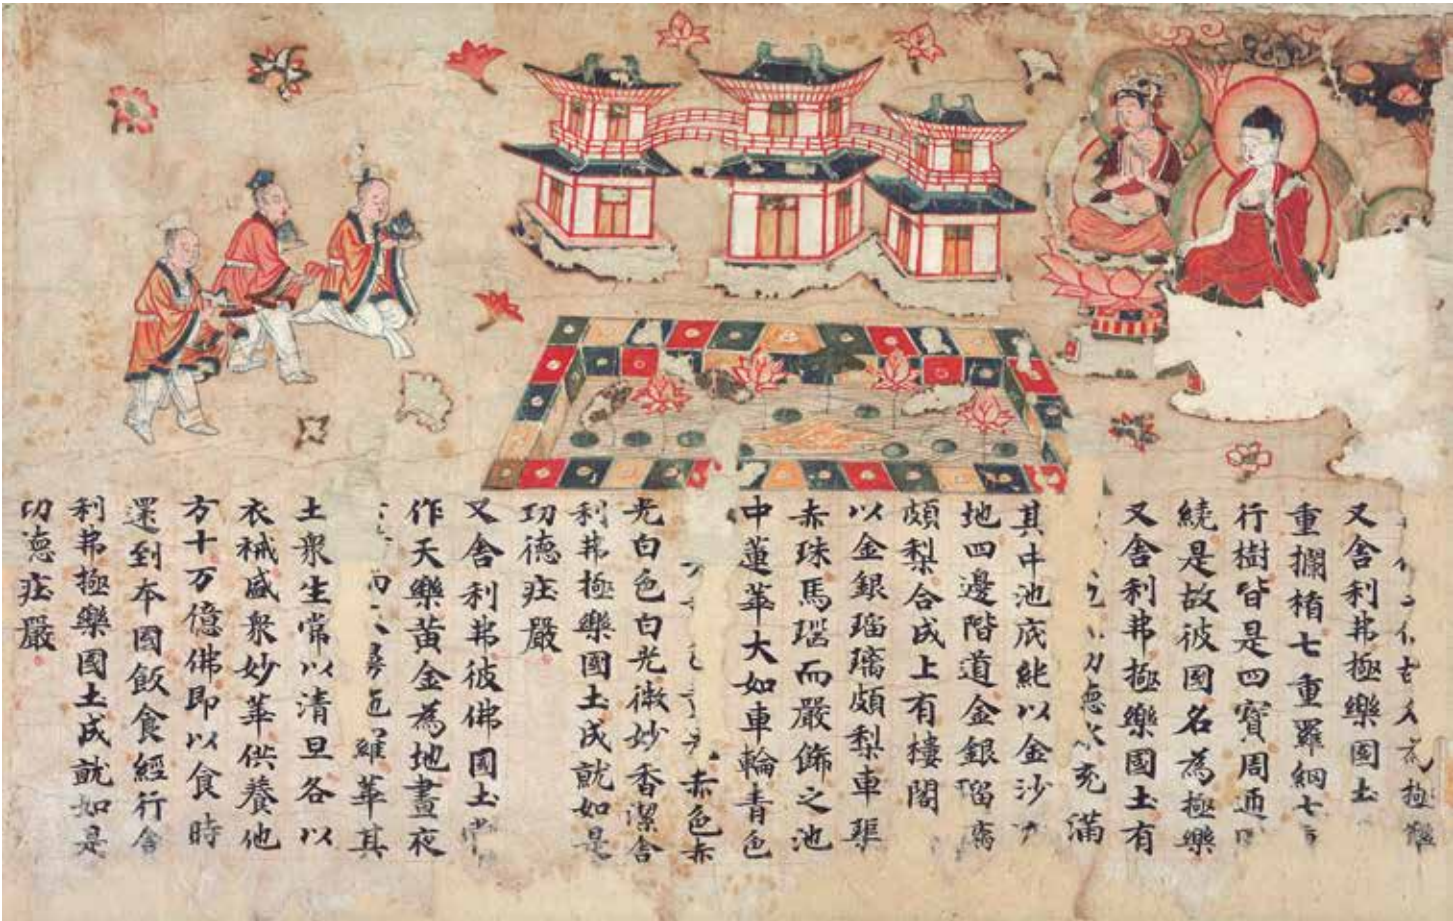 極
又舍利弗極樂國土
重攔楯七重羅網七
行樹皆是四寶周迊
繞是故彼國名為極樂
又舍利弗極樂國土有
德水充滿
其中池底純以金沙
地四邊階道金銀瑠璃
頗梨合成上有樓閣
以金銀瑠璃頗梨車璖
赤珠馬瑙而嚴飾之池
中蓮華大如車輪青色
赤色赤
光白色白光微妙香潔舍
利弗極樂國土成就如是
功德庄嚴
又舍利弗彼佛國土常
作天樂黃金為地晝夜
羅華其
土衆生常以清旦各以
衣祴盛衆妙華供養他
方十万億佛即以食時
還到本國飯食經行舍
利弗極樂國土成就如是
功德庄嚴